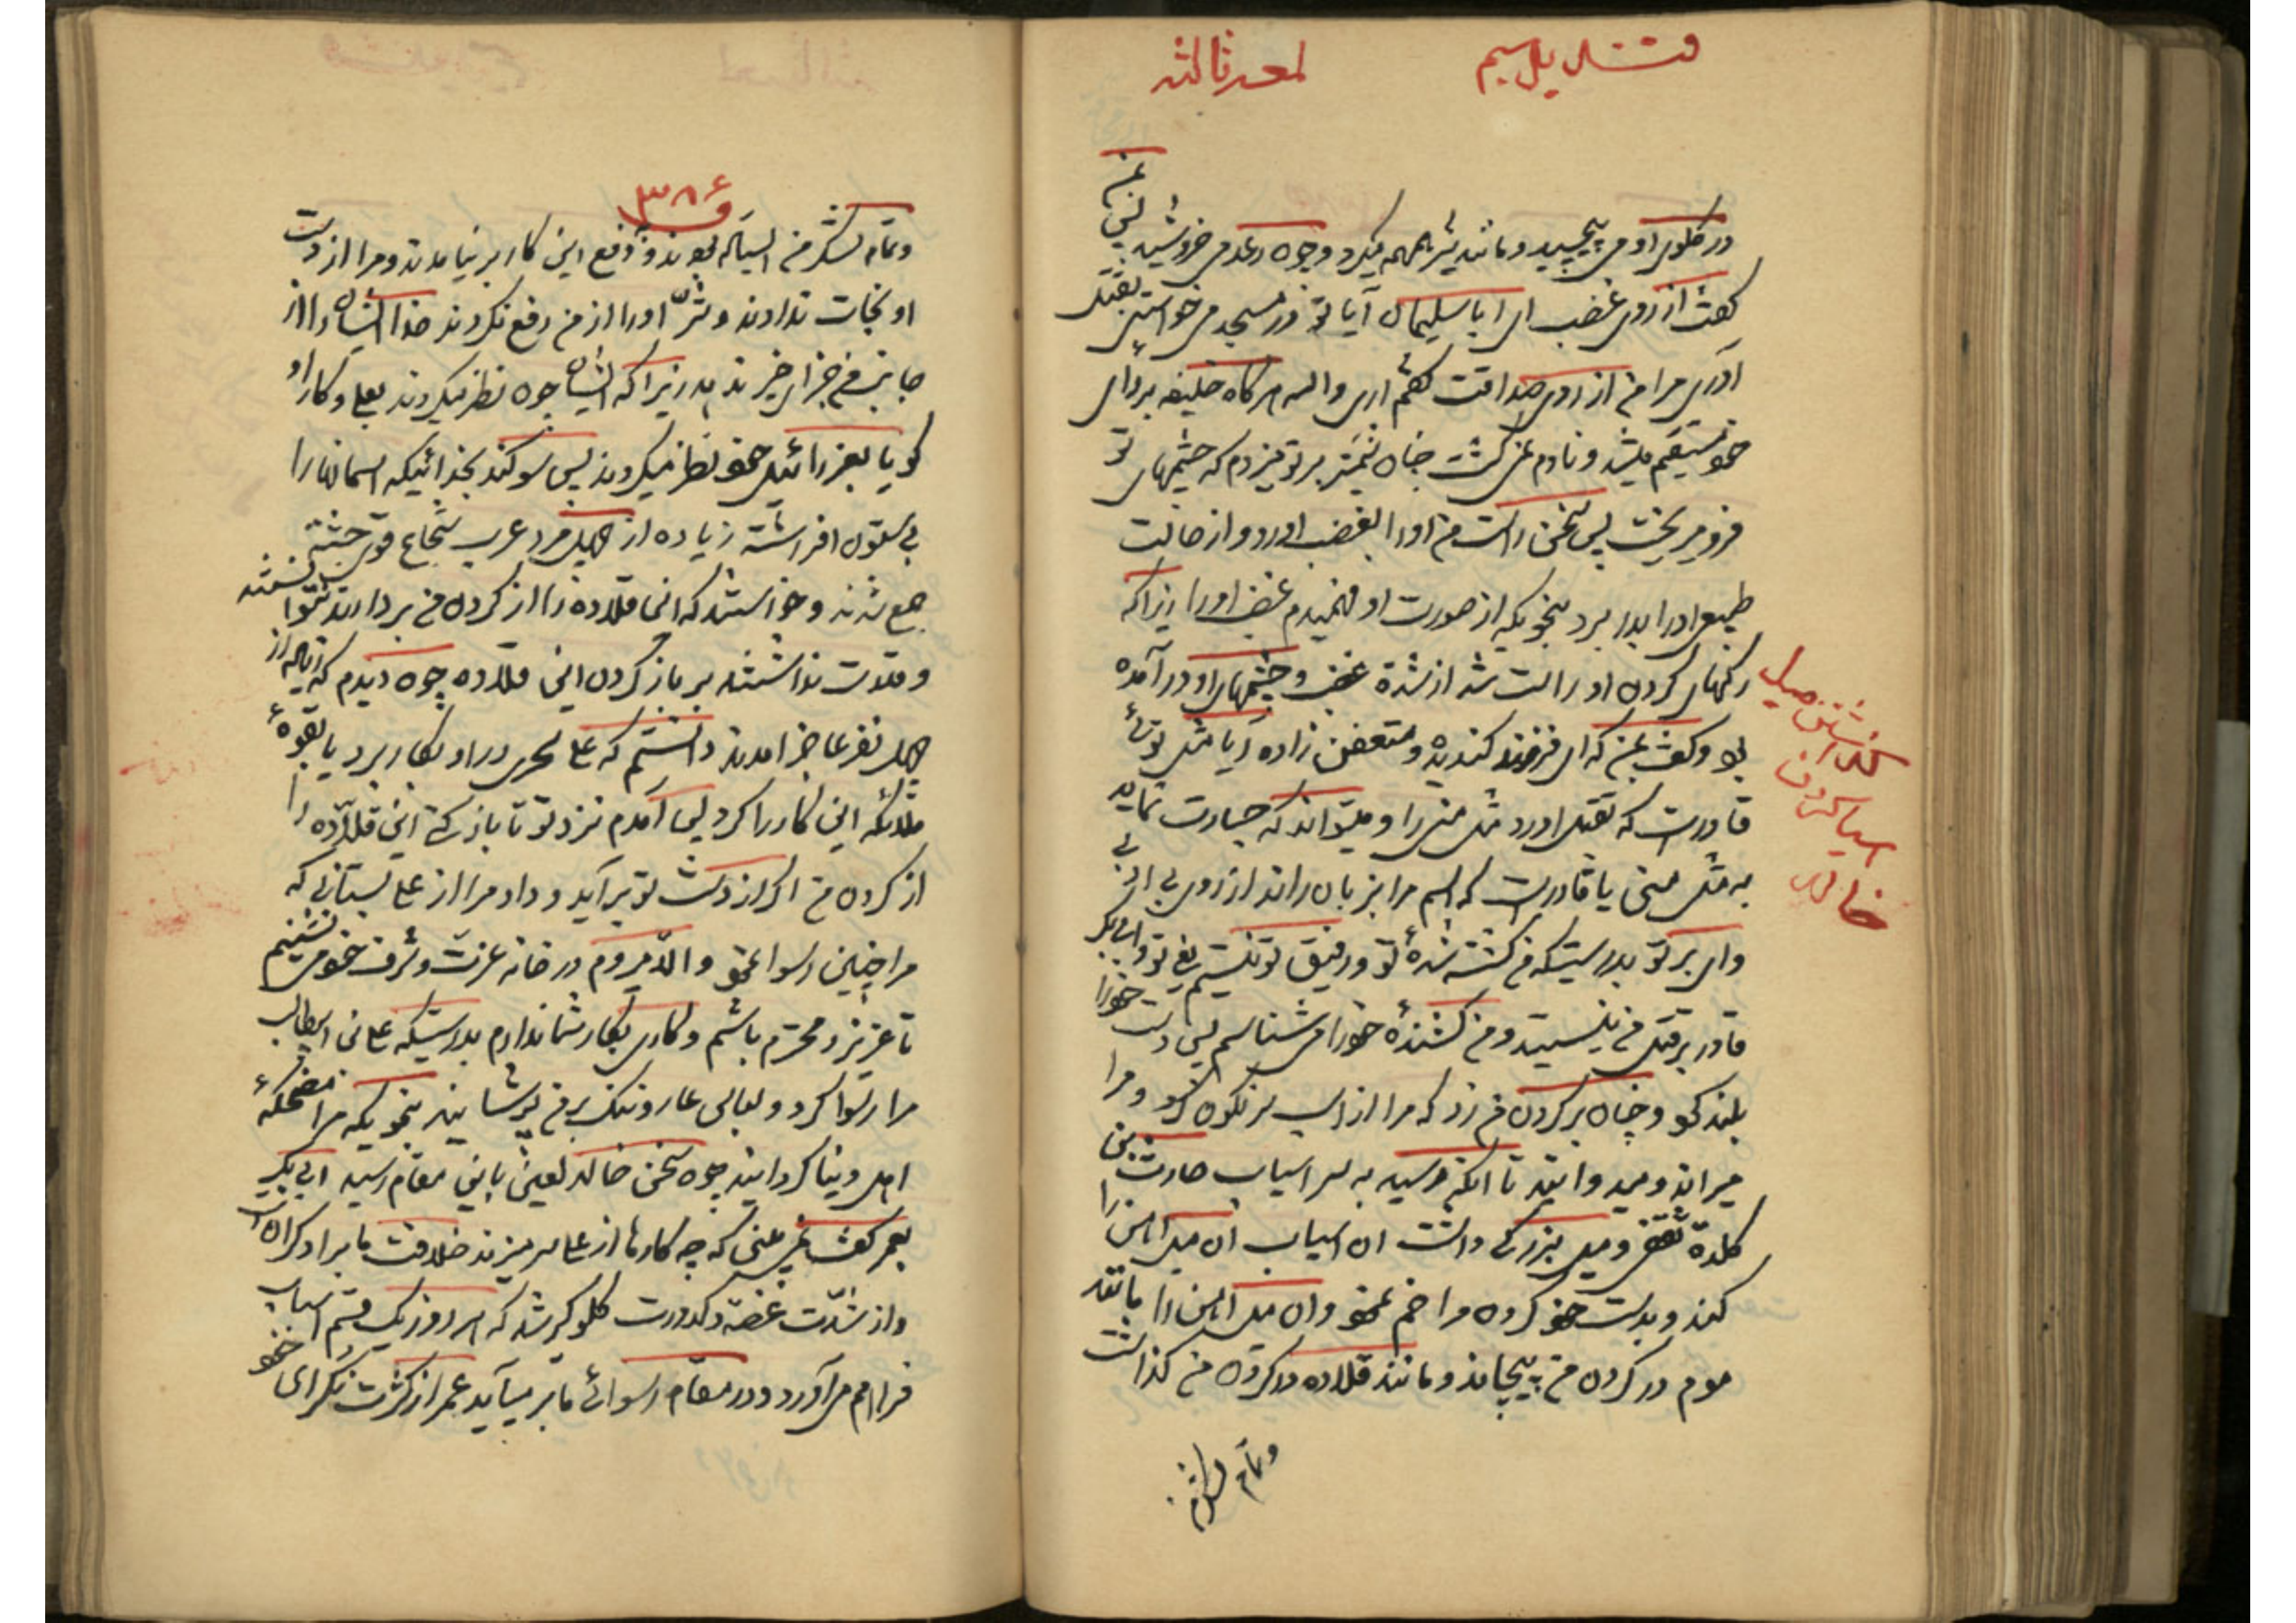 قندیل سیم
لمعه ثالثه
در کلوی او می پیچید و مانند شیر همهمه میکرد و چون رعد می خروشید پس بمن
کفت از روی غضب ای ابا سلیمان آیا تو در مسجد می خواستی بقتل
آوری مرا من از روی صداقت کفتم اری والله هرکاه خلیفه بر رای
خود مستقیم میشد و نادم نمی کشت چنان شمشیر بر تو میزدم که چشمهای تو
فرو میریخت پس سخن راست من او را بغضب اورد و از حالت
طبیعی او را بدر برد بنحویکه از صورت او فهمیدم غضب او را زیرا که
رکهای کردن او راست شد از شدة غضب و چشمهای او در آمده
بود و کفت بمن که ای فرزند کندیده و متعفن زاده آیا مثل توئی
قادرست که بقتل اورد مثل منی را و میتواند که جسارت نماید
به مثل منی یا قادرست که اسم مرا بزبان راند از روی بی ادبی
وای بر تو بدرستیکه من کشته شدهٔ تو و رفیق تو نیستم یعنی تو و ابی بکر
قادر بر قتل من نیستید و من کشندهٔ خود را می شناسم پس دست خود را
بلند کرد و چنان بر کردن من زد که مرا از اسب سرنکون کرد و مرا
میراند و میدوانید تا انکه رسید به سر اسیاب حارث بن
کلدة ثقفی و میل بزرکی داشت ان اسیاب ان میل اهن را
کند و بدست خود کردن مرا خم نمود و ان میل اهن را مانند
موم در کردن من پیچاند و مانند قلاده در کردن من کذاشت
کذاشتن میل
اسیا کردن
خالد
و تمام لشکر من
۳۸۶
و تمام لشکر من ایستاده بودند و دفع این کار بر نیامدند و مرا از دست
او نجات ندادند و شرّ او را از من دفع نکردند خدا ایشان را از
جانب من جزای خیر ندهد زیرا که ایشان چون نظر میکردند بعلی و کار او
کویا بعزرائیل خود نظر میکردند پس سوکند بخدائیکه اسمانها را
بی ستون افراشته زیاده از چهل مرد عرب شجاع قوی جثه
جمع شدند و خواستند که این قلاده را از کردن من بردارند نتوانستند
و قدرت نداشتند بر باز کردن این قلاده چون دیدم که زیاده از
چهل نفر عاجز امدند دانستم که علی سحری در او بکار برد یا بقوهٔ
ملائکه این کار را کرد پس آمدم نزد تو تا باز کنی این قلاده را
از کردن من اکر از دست تو بر آید و داد مرا از علی بستانی که
مرا چنین رسوا نمود والّا میروم در خانه عزت و شرف خود می نشینم
تا عزیز و محترم باشم و کاری بکار شما ندارم بدرستیکه علی ابن ابیطالب
مرا رسوا کرد و لباس عار و ننک بر من پوشانید بنحویکه مرا مضحکهٔ
اهل دنیا کردانید چون سخن خالد لعین باین مقام رسید ابی بکر
بعمر کفت نمی بینی که چه کارها از علی سر میزند خلافت ما بر او کران است
و از شدّت غصه و کدورت کلو کیر شد که هر روز یک قسم اسباب
فراهم می آورد و در مقام رسوائی ما بر میآید عمر از کثرت نکرای خود